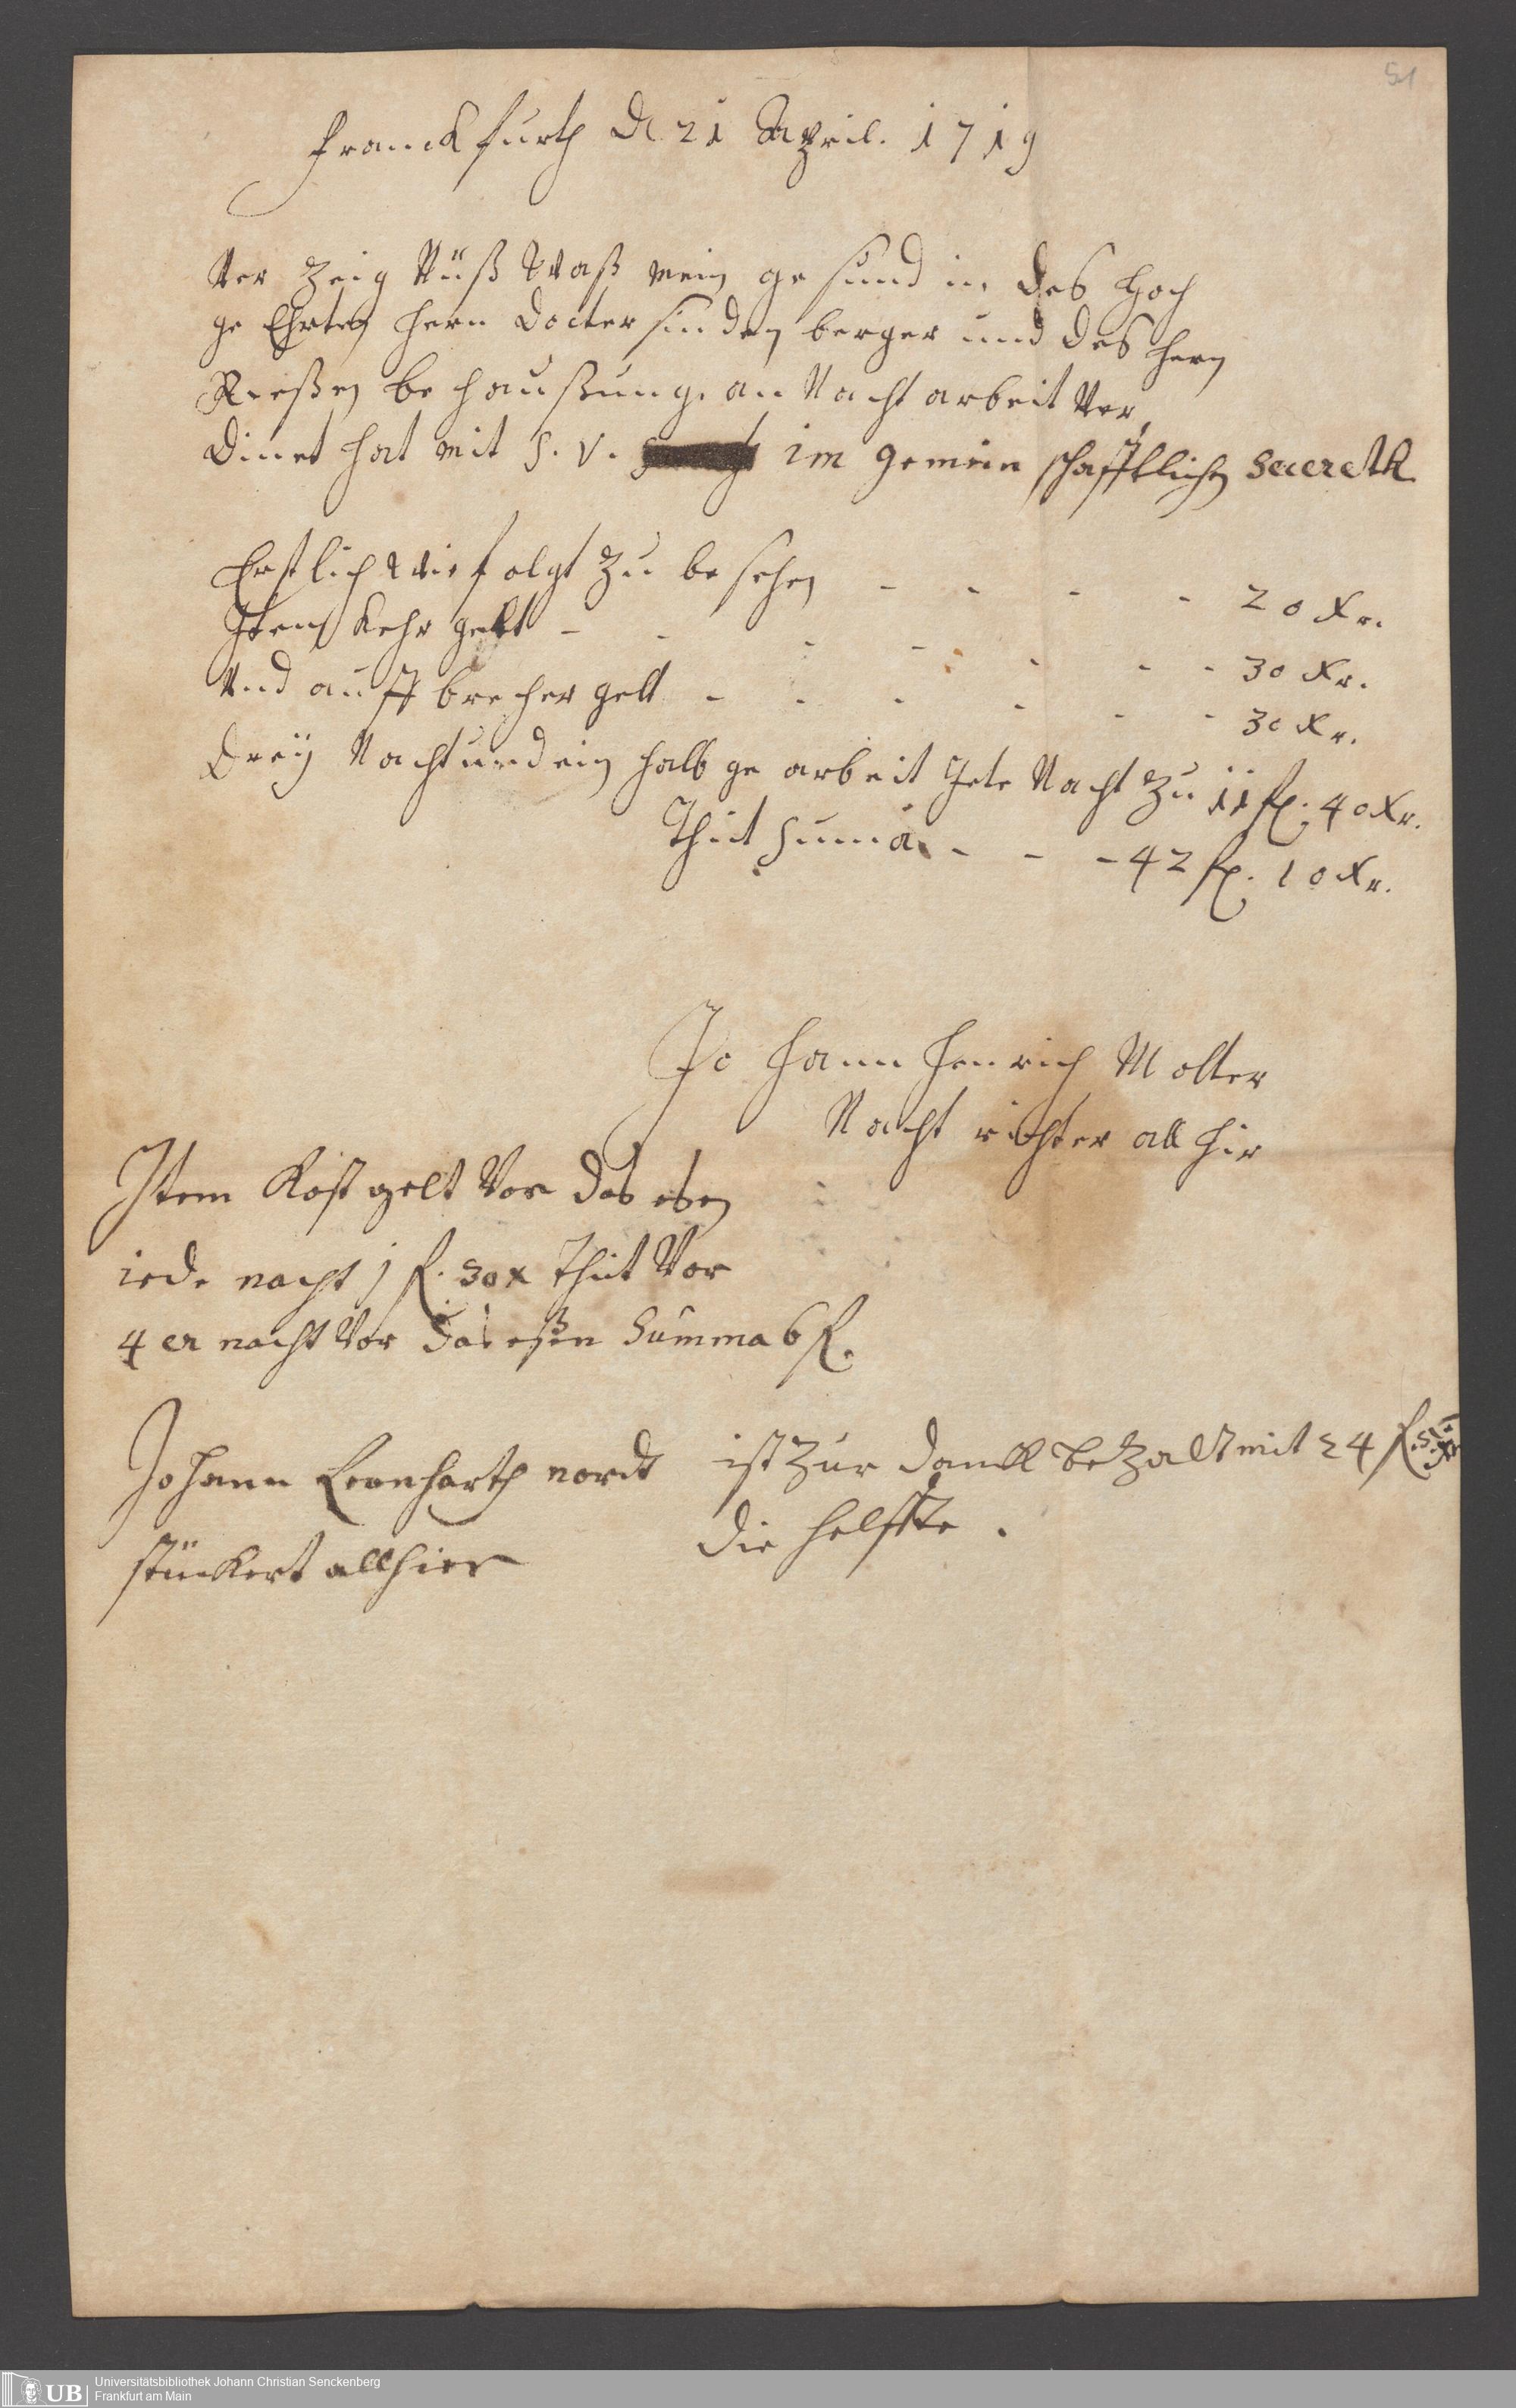 51
Franckfurth d 21 April. 1719
Ver Zeig Nüß Waß mein ge sünd in des Hoch
ge Ehrten Hern Docter sinden berger und des Hern
Rießen be haußung. an Nacht arbeit Ver
Dinet hat mit S. V. im gemein schafftlichen Secreth
Erstlich Wie folgt zu be sehen - - - - 20 Xr.
Item Kehr gelt - - - - - - - 30 Xr.
Und auff brecher gelt - - - - - - 30 Xr.
Dreÿ Nacht und ein halb ge arbeit Jete Nacht zu 11 fl. 40 Xr.
Thut Suma - - - 42 fl. 10 Xr.
Jo hann Henrich Molter
Nacht richter all hir
Item Kost gelt Vor das eßen
iede nacht 1 fl. 30 x thut Vor
4 er nacht Vor das eßen Summa 6 fl.
Johann Leonharth nordt
stückert allhier
ist zur danck bezalt mit 24 fl. 5 Xr
die helffte.
UB Universitätsbibliothek Johann Christian Senckenberg
Frankfurt am Main